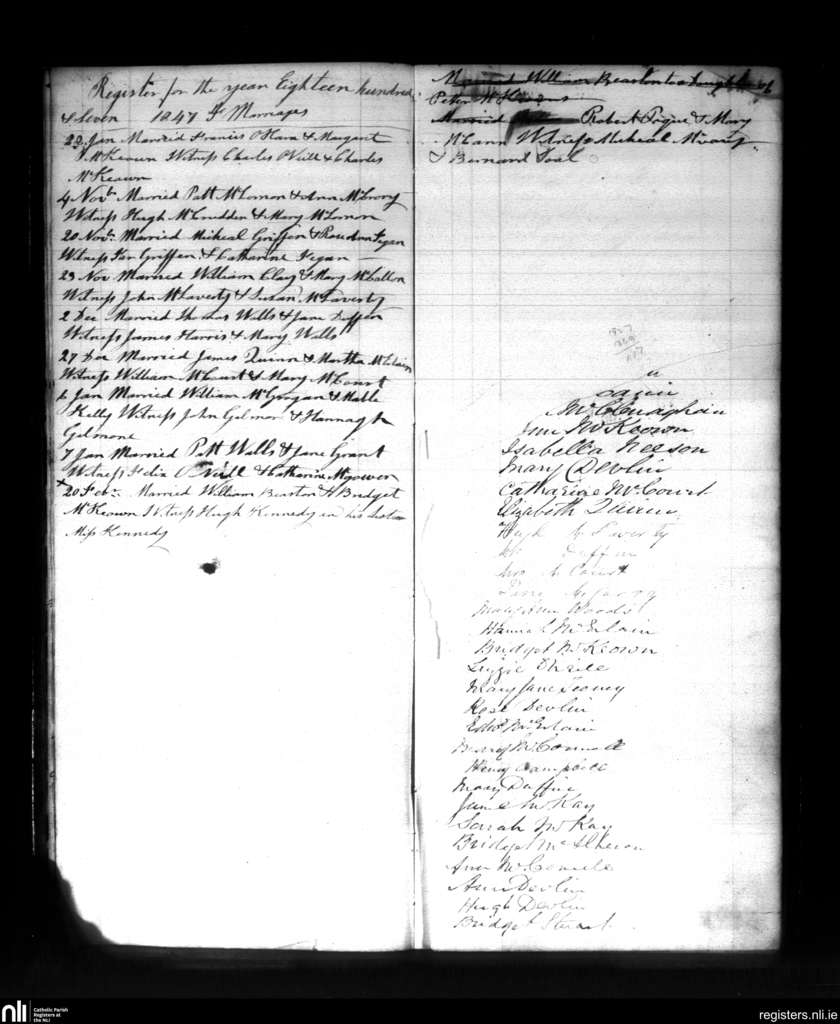 Register for the year Eighteen hundred
& Seven 1847 of Marriages
29 Jan Married Francis O Hara & Margaret
McKeown Witness Charles O Neill & Charles
McKeown
4 Novb Married Patt McLornon & Ann McCrory
Witness Hugh McCrudden & Mary McLornon
20 Novb. Married Micheal Griffen & Rose Ann Fegan
Witness Griffen & Catharine Fegan
23 Nov Married William Clay & Mary McCallon
Witness John McLaverty & Susan McLaverty
2 Dec Married Walls & Jane Duffen
Witness James Harris & Mary Walls
27 Dec Married James Quinn & Martha McClain
Witness William McCourt & Mary McCourt
6 Jan Married William McGrogan & Mable
Kelly Witness John Gelmore & Hannagh
Gelmore
7 Jan Married Patt Walls & Jane Grant
Witness Felix O Neill & Catharine Mcgowen
+ 20 Febr. Married William Bearton & Bridget
McKeown Witness Hugh Kennedy an his Sister
Miss Kennedy
Married William Bearton to daughter of
Peter McKeown
Married Robert Pogue & Mary
McCann Witness Micheal
& Bernard
McClenaghan
McKeown
Isabella Neeson
Mary Devlin
Catharine McCourt
Elizabeth Quinn
Hugh McLaverty
Duffin
McCourt
Mary Ann Woods
Hannah McErlain
Bridget McKeown
Lizzie Shiele
Mary Jane Toomey
Rose Devlin
Edwd McErlain
McConnell
Henry Campbell
Mary Duffin
Jane McKay
Sarah McKay
Bridget McIlheron
Ann McConnell
Ann Devlin
Hugh Devlin
Bridget Stewart
nli
Catholic Parish
Registers at
the NLI
registers.nli.ie